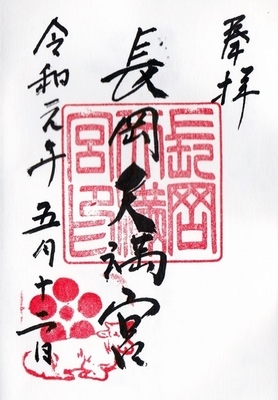 奉拝
長岡天満宮
令和元年五月十二日
長岡
天満
宮印